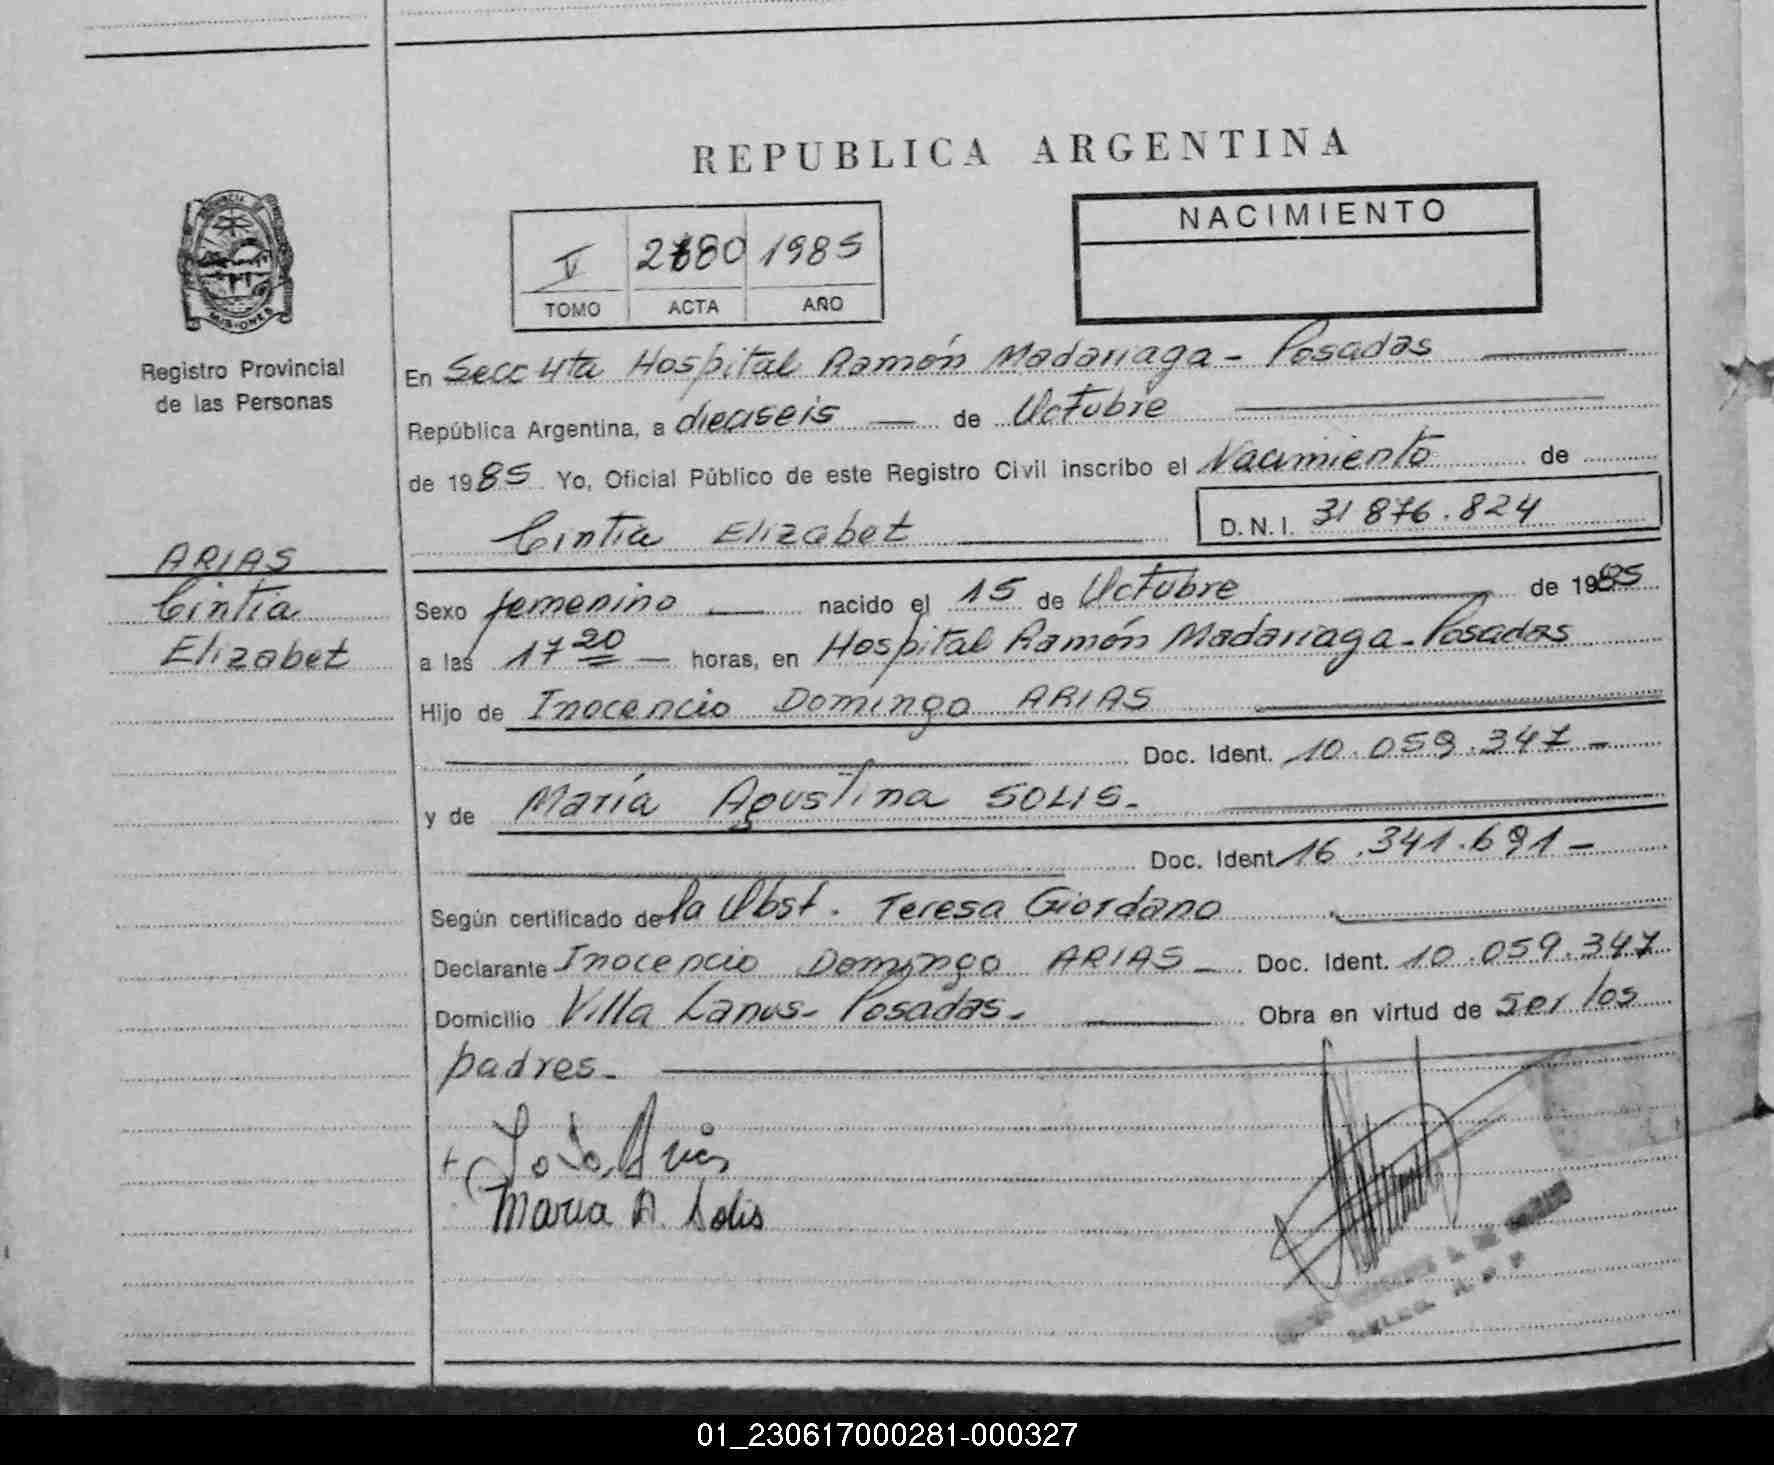 REPUBLICA ARGENTINA
PROVINCIA DE
MISIONES
Registro Provincial
de las Personas
V 1985
TOMO ACTA AÑO
NACIMIENTO
En Secc 4ta Hospital Ramón Madariaga - Posadas
República Argentina, a dieciseis de Octubre
de 1985 Yo, Oficial Público de este Registro Civil inscribo el Nacimiento de
Cintia Elizabet D.N.I. 31876.824
ARIAS
Cintia
Elizabet
Sexo femenino nacido el 15 de Octubre de 1985
a las 17 20 horas, en Hospital Ramón Madariaga - Posadas
Hijo de Inocencio Domingo ARIAS
Doc. Ident. 10.059.347 -
y de María Agustina SOLIS -
Doc. Ident. 16.341.691 -
Según certificado de la Obst. Teresa Giordano
Declarante Inocencio Domingo ARIAS - Doc. Ident. 10.059.347
Domicilio Villa Lanus - Posadas - Obra en virtud de ser los
padres -
Arias
Maria A. Solis
01_230617000281-000327